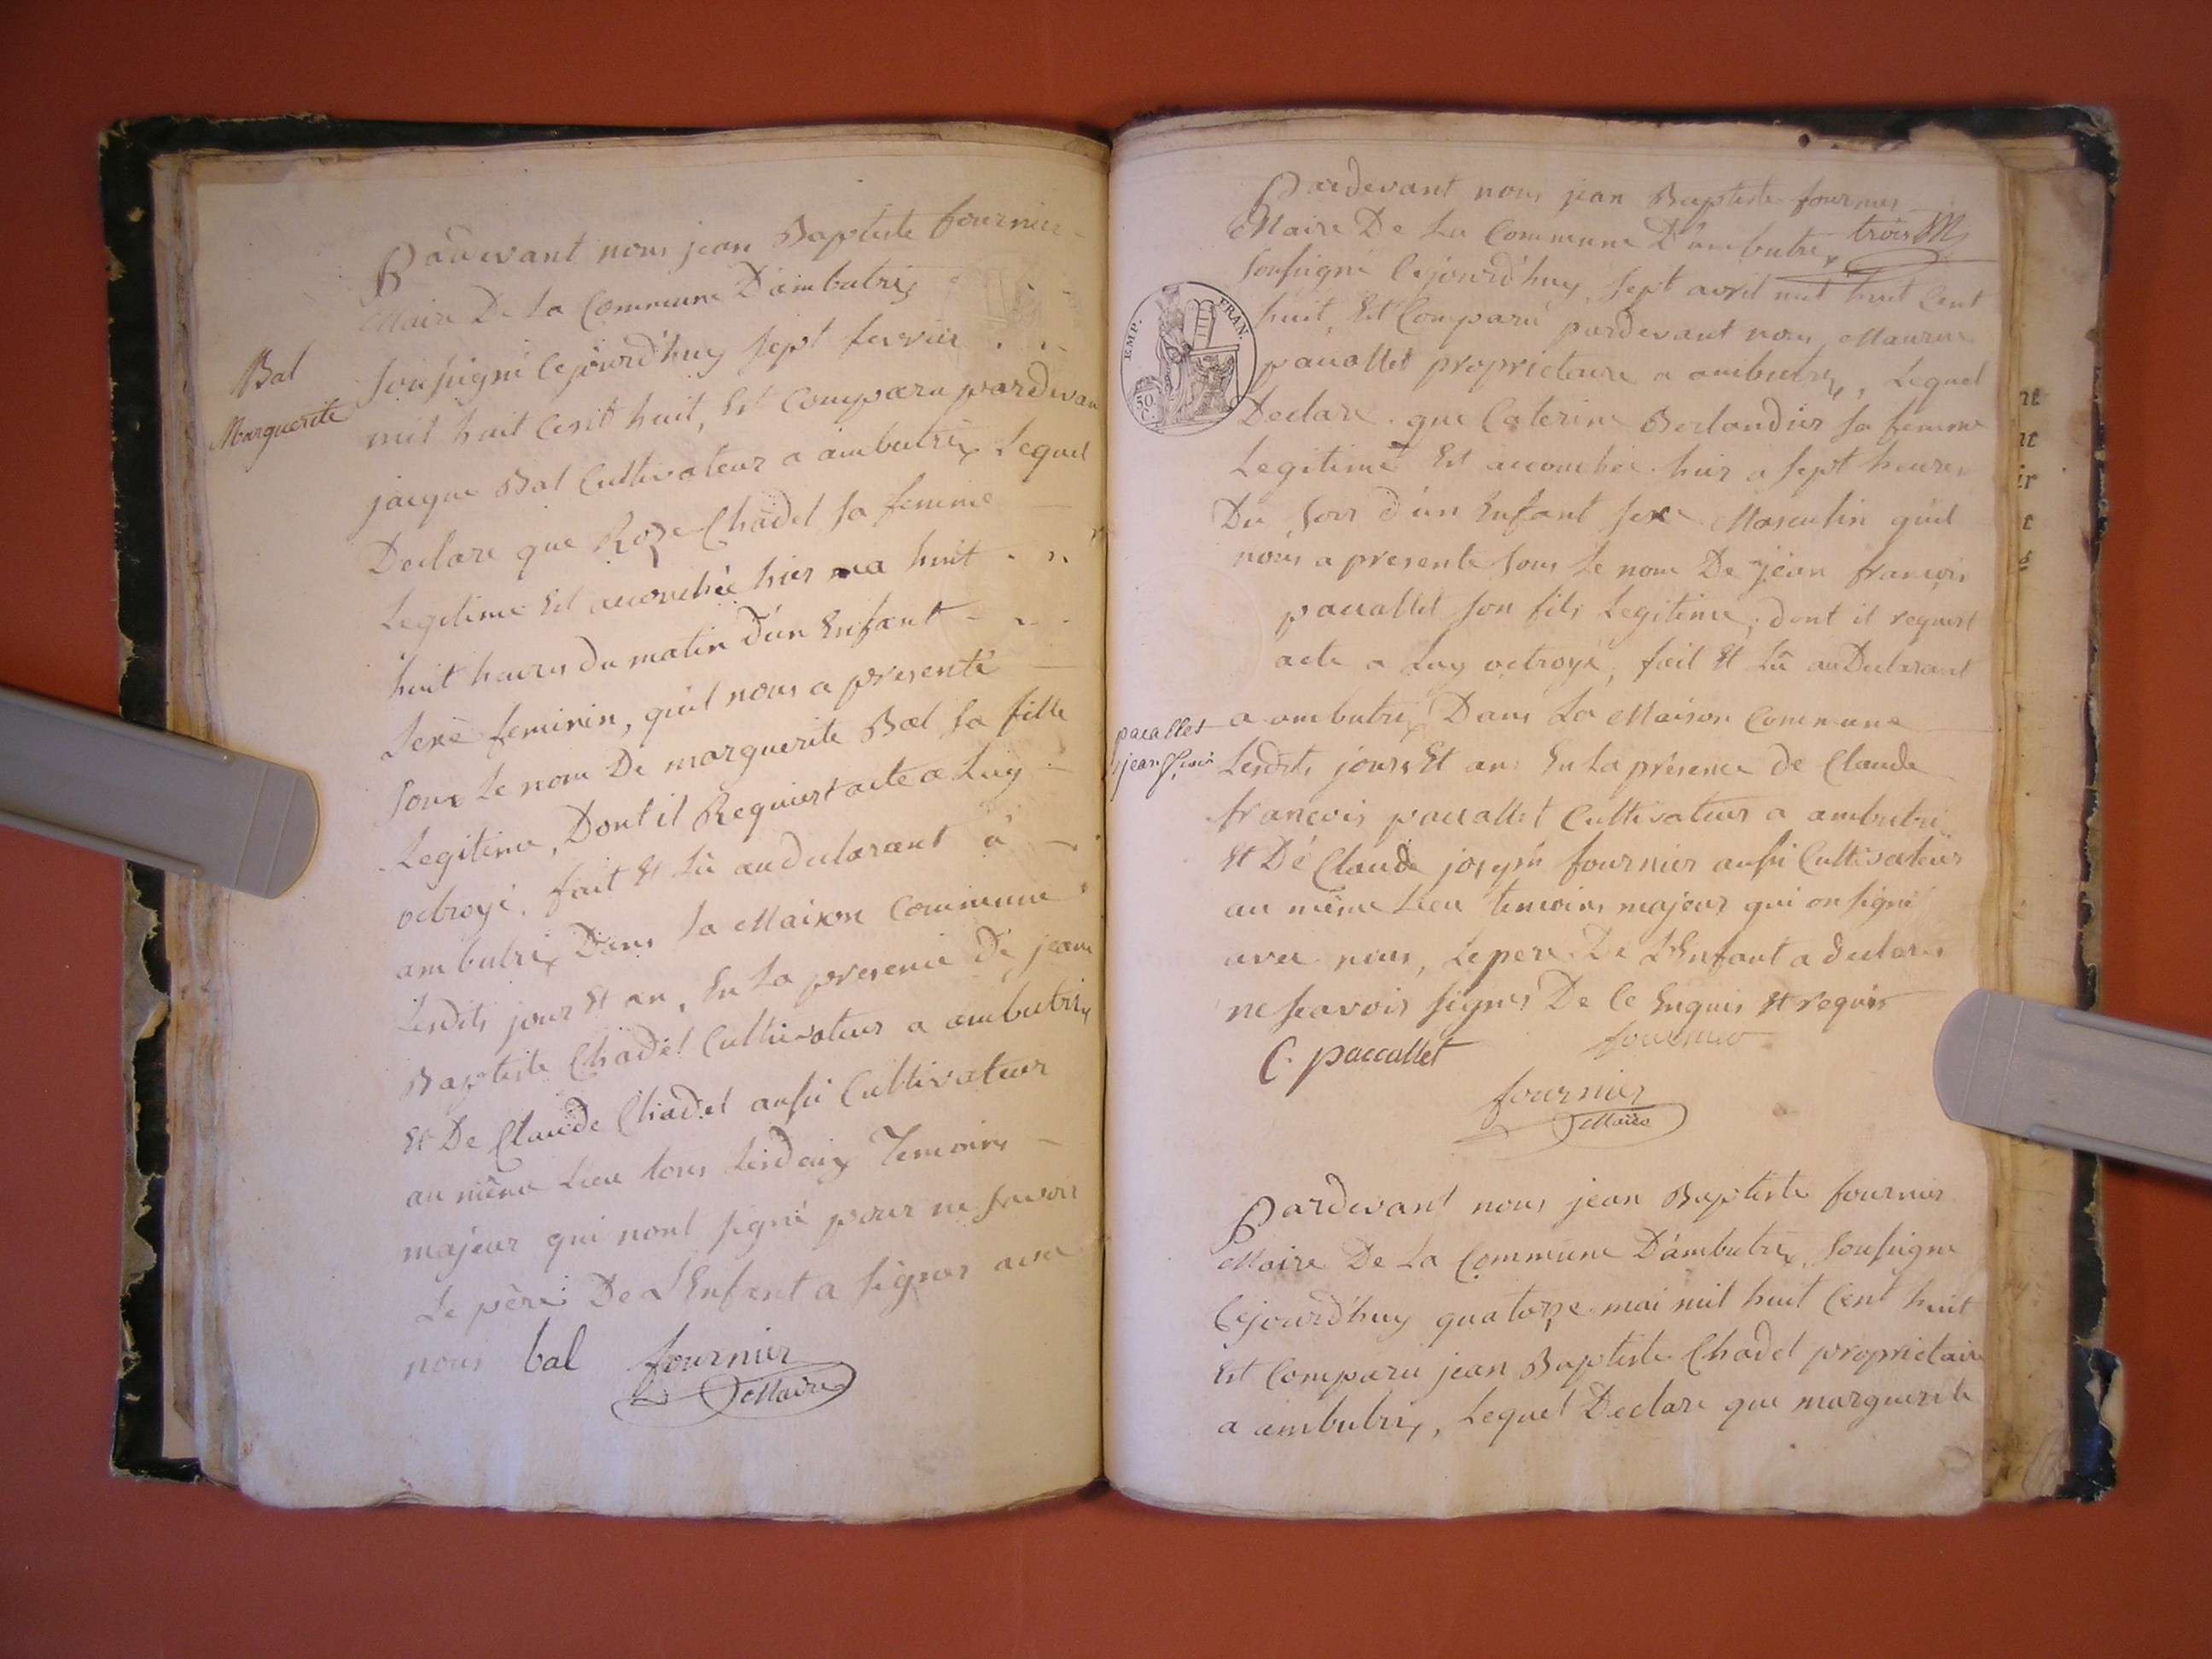 Bal
Marguerite
Pardevant nous jean Baptiste fournier
Maire De La Commune D'ambutrix
soussigné Cejourd'huy sept fevrier
mil huit Cent huit, Est Comparu pardevan
jacque Bal Cultivateur a ambutrix Lequel
Declare que Roze Chadel sa femme
Legitime Est accouchée hier a huit
huit heures du matin d'un Enfant
sexe feminin, quil nous a presenté
sous Le nom De marguerite Bal sa fille
Legitime, Dont il Requiert acte a Luy
octroyé. fait Et Lû au declarant à
ambutrix Dans la Maison Commune
Lesdits jour Et an, En La presence De jean
Baptiste Chadel Cultivateur a ambutrix
Et De Claude Chadel aussi Cultivateur
au même Lieu tous Lesdeux Temoins
majeur qui nont signé pour ne savoir
Le père De L'Enfant a signer avec
nous bal fournier
Maire
Pardevant nous jean Baptiste fournier
Maire De La Commune D'ambutrix trois
soussigné Cejourd'huy sept avril mil huit Cent
huit, Est Comparu pardevant nous Maurice
EMP. FRAN.
50 C.
pacallet proprietaire a ambutrix, Lequel
Declare que Caterine Berlandier sa femme
Legitime Est accouchée hier a sept heures
Du soir d'un Enfant sexe Masculin quil
nous a presente sous Le nom De jean francois
pacallet son fils Legitime, dont il requiert
acte a Luy octroyé, fait Et Lû au Declarant
pacallet
jean fcois
a ambutrix Dans La Maison Commune
Lesdits jours Et an En La présence De Claude
francois pacallet Cultivateur a ambutrix
Et Dé Claude joseph fournier aussi Cultivateur
au même Lieu temoins majeur qui on signé
avec nous, Le pere De L'Enfant a declarer
ne scavoir signer De Ce Enquis Et requis
C. paccallet fournier
fournier
Maire
Pardevant nous jean Baptiste fournier
Maire De La Commune D'ambutrix, soussigne
Cejourd'huy quatorze mai mil huit Cent huit
Est Comparu jean Baptiste Chadel proprietaire
a ambutrix, Lequel Declare que marguerite